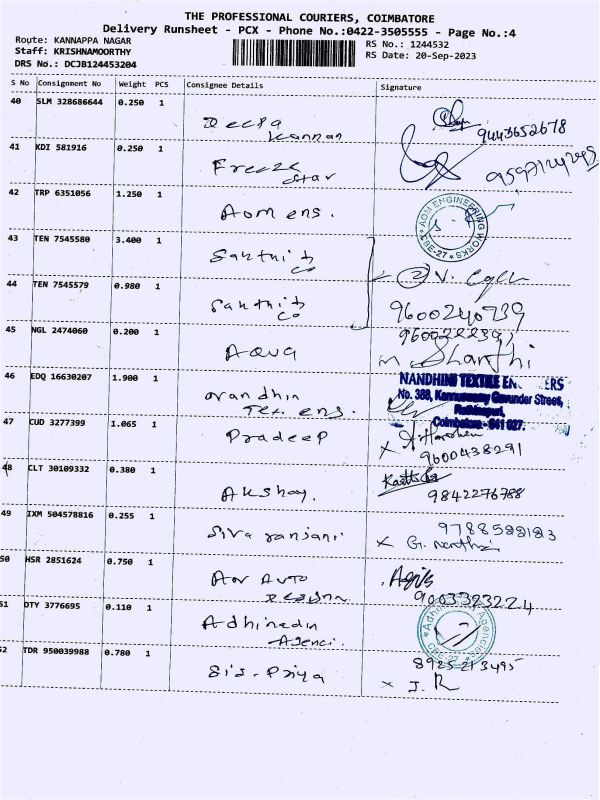 THE PROFESSIONAL COURIERS, COIMBATORE
Delivery Runsheet - PCX - Phone No.:0422-3505555 - Page No.:4
Route: KANNAPPA NAGAR
Staff: KRISHNAMOORTHY
DRS No.: DCJB124453204
RS No.: 1244532
RS Date: 20-Sep-2023
S No Consignment No Weight PCS Consignee Details Signature
40 SLM 328686644 0.250 1
Deepa
Kannan
9443652678
41 KDI 581916 0.250 1
Freeze
Star
42 TRP 6351056 1.250 1
Aom ens.
AOM ENGINEERING WORKS
CBE-27
43 TEN 7545580 3.400 1
Sakthi &
Co
2 V.
44 TEN 7545579 0.980 1
Sakthi &
Co
9600240739
45 NGL 2474060 0.200 1
Aqua
M. Shanthi
46 EDQ 16630207 1.900 1
Nandhin
Tex. ens.
NANDHINI TEXTILE EN ERS
No. 388, Kannuswamy Gounder Street,
Rathinapuri,
Coimbatore - 641 027.
47 CUD 3277399 1.065 1
Pradeep
x
9600438291
48 CLT 30109332 0.380 1
Akshay.
9842276788
49 IXM 504578816 0.255 1
Siva ranjani
9788588183
x G.
50 HSR 2851624 0.750 1
Am Auto
9003323224
51 OTY 3776695 0.110 1
Adhinadn
Agenci.
Agencies
CBE-27
52 TDR 950039988 0.780 1
Sis-Priya
8925213495
x J. R